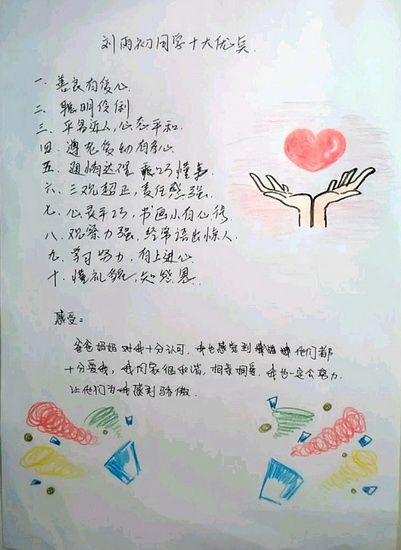 刘雨初同学十大优点.
一、善良有爱心
二、聪明伶俐
三、平易近人,心态平和
四、尊老爱幼有孝心
五、通情达理 乖巧懂事
六、三观超正,责任感强
七、心灵手巧,书画小有心得
八、观察力强,经常语出惊人.
九、学习努力,有上进心
十、懂礼貌,知感恩
感受:
爸爸妈妈对我十分认可,我也感觉到 他们都
十分爱我,我的家很和谐,相亲相爱,我也一定会努力.
让他们为我感到骄傲.